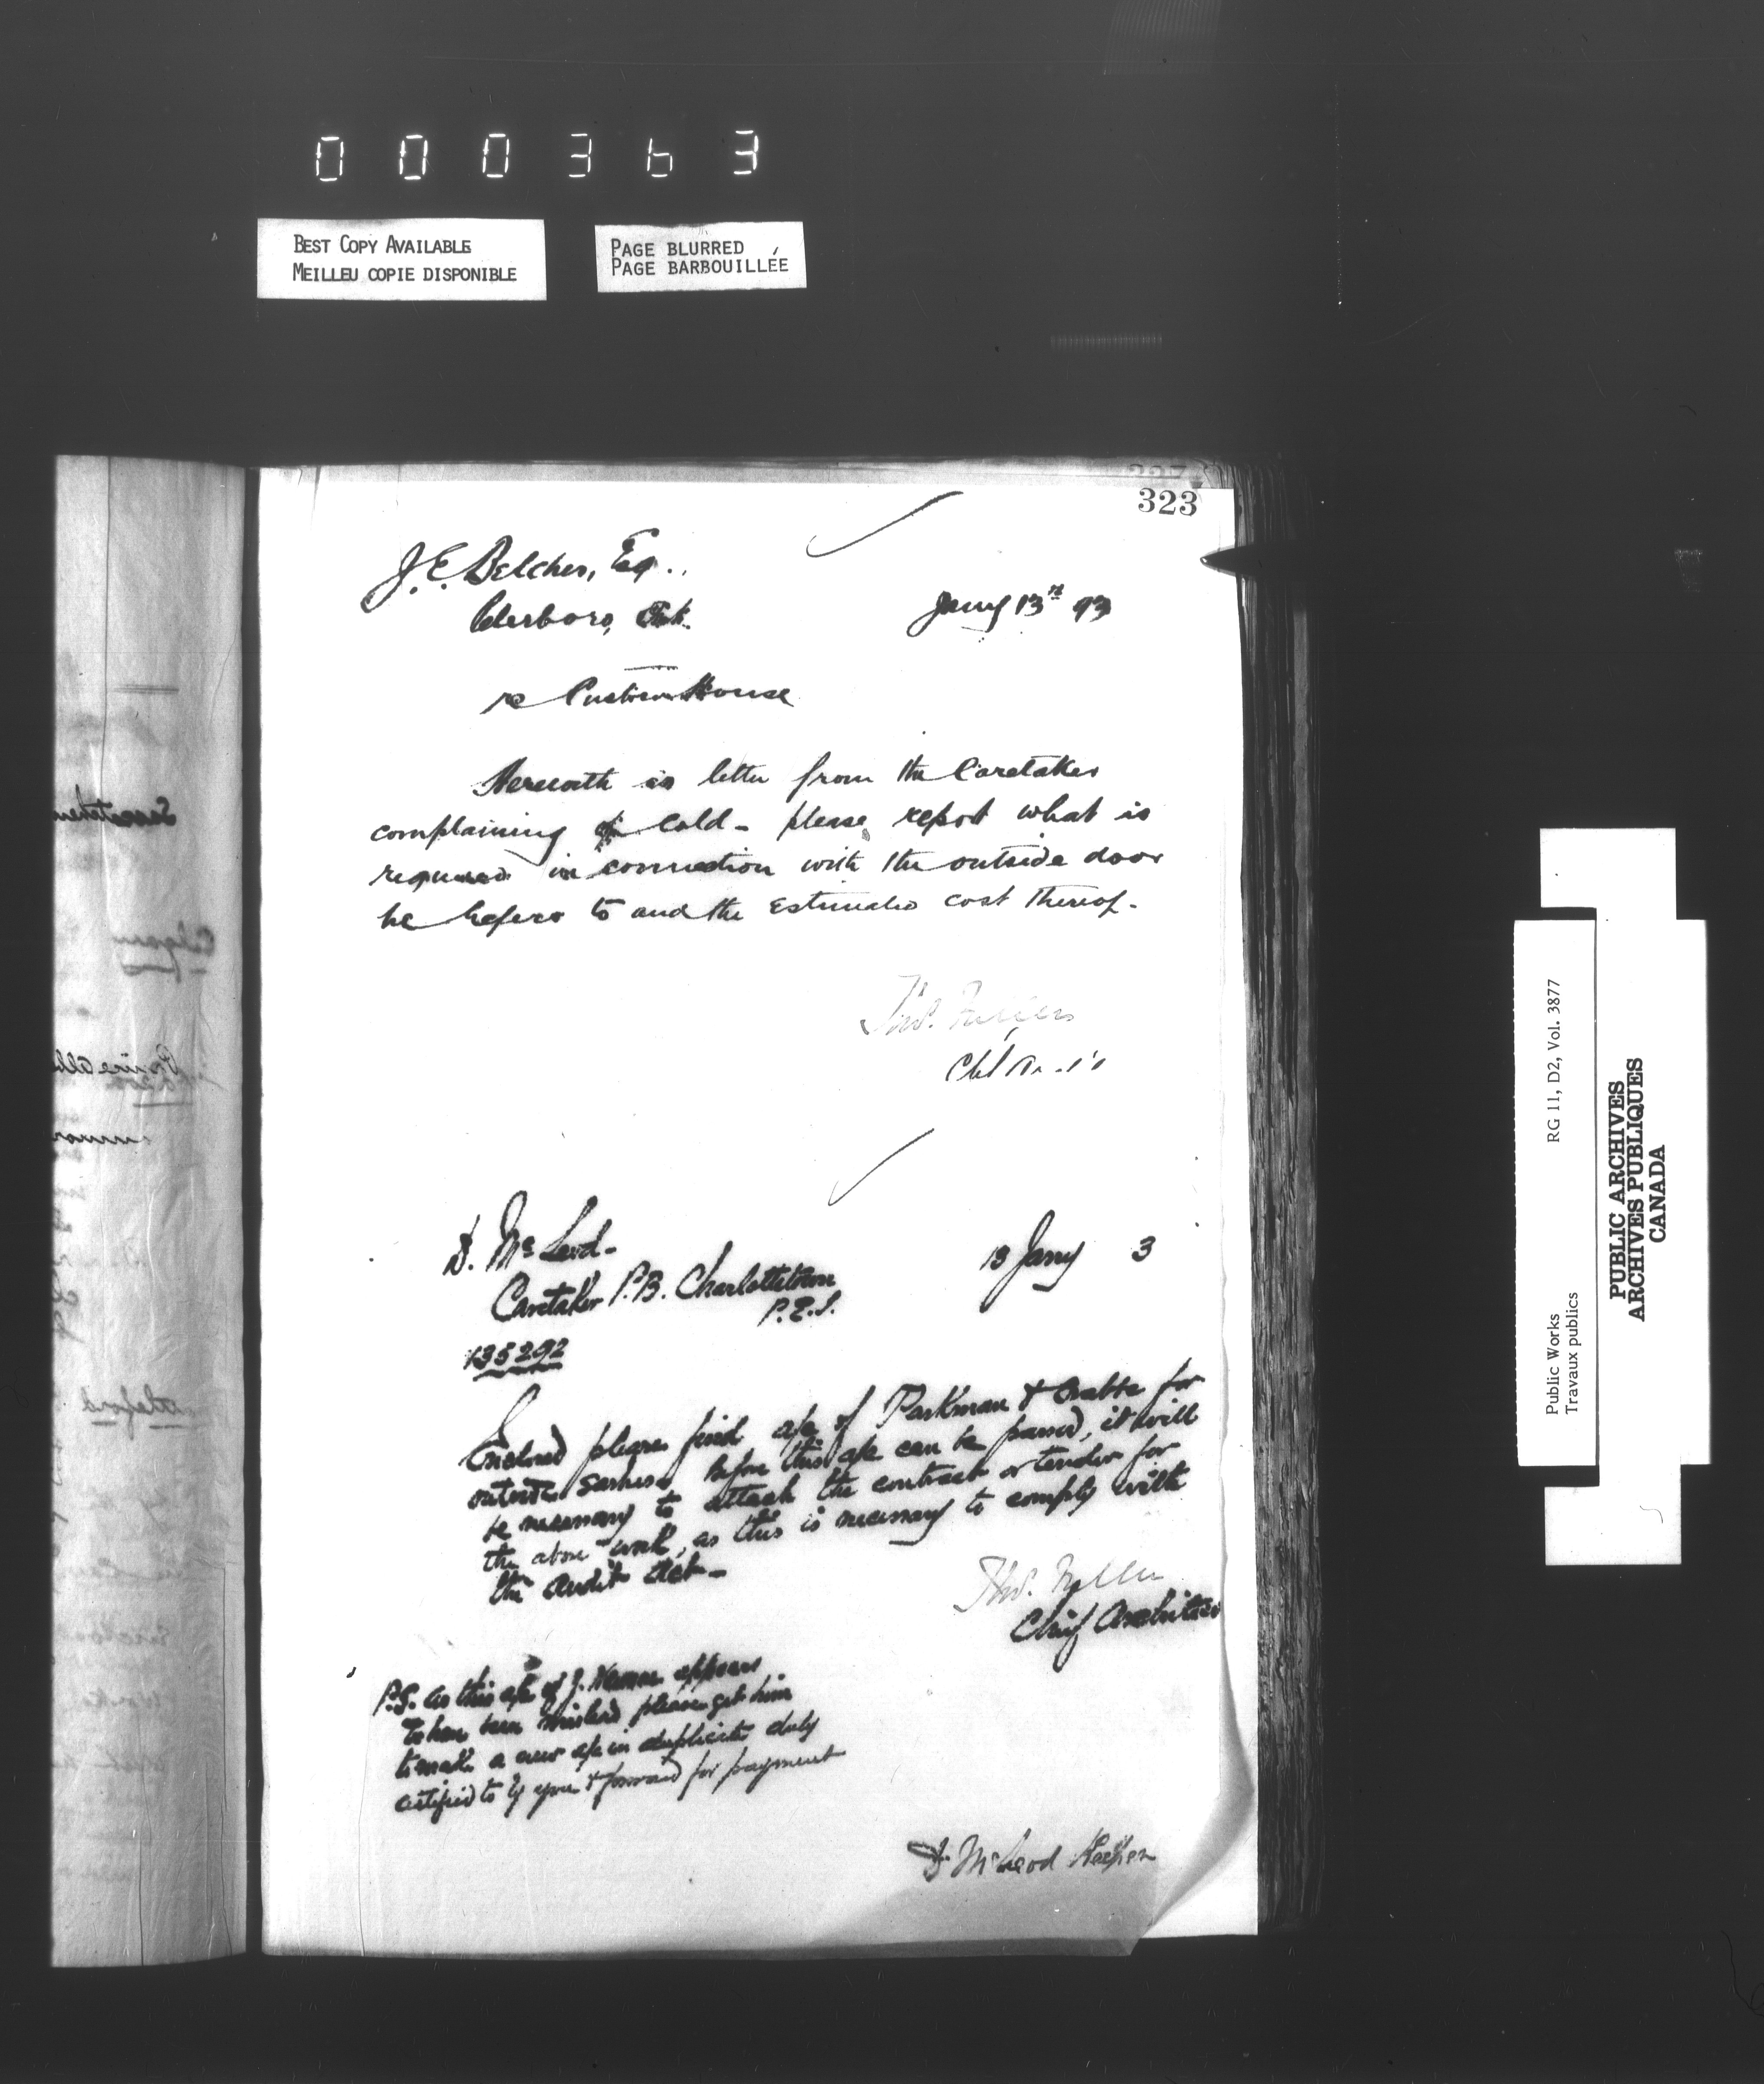 000363
BEST COPY AVAILABLE
MEILLEU COPIE DISPONIBLE
PAGE BLURRED
PAGE BARBOUILLÉE
323
J. E. Belcher, Esq.
Peterboro, Ont.
Jany 13th 93
re Custom House
Herewith is letter from the Caretaker
complaining of Cold - please report what is
required in connection with the outside door
he refers to and the estimated cost thereof.
Thos. Fuller
Chf Arch
D. McLeod -
Caretaker P.B. Charlottetown
P.E.I.
13 Jany 3
135292
Enclosed please find a/c of Parkman & Crabbe for
outside sashes. Before this a/c can be passed, it will
be necessary to attach the contract or tender for
the above work, as this is necessary to comply with
the Audit Act -
Thos. Fuller
Chief Architect
P.S. As this a/c of J. appears
to have been mislaid please get him
to make a new a/c in duplicate duly
certified to by you & forward for payment
D. McLeod
RG 11, D2, Vol. 3877
Public Works
Travaux publics
PUBLIC ARCHIVES
ARCHIVES PUBLIQUES
CANADA